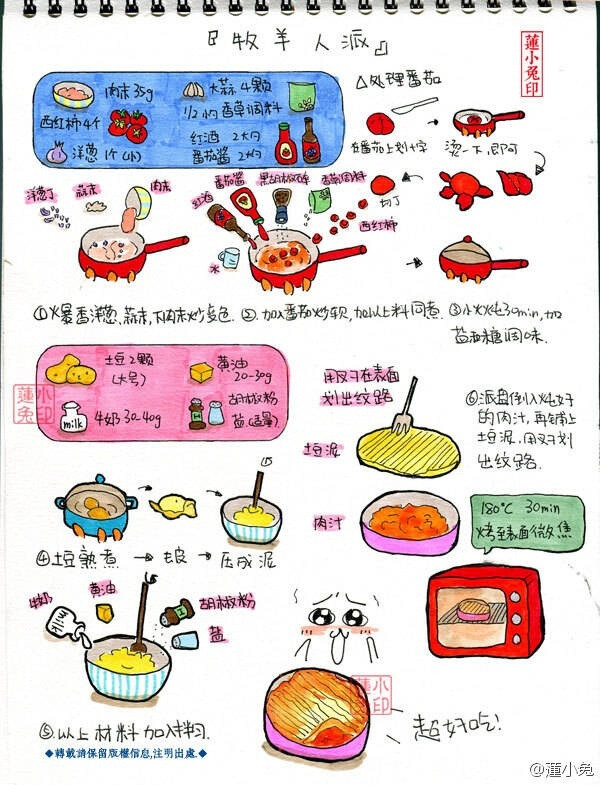 『牧羊人派』
蓮小兔印
肉末35g
大蒜4颗
西红柿4个
1/2小勺香草调料
红酒 2大勺
洋葱 1个(小)
番茄酱 2大勺
△处理番茄
在番茄上划十字
烫一下即可
切丁
西红柿
洋葱丁
蒜末
肉末
红酒
番茄酱
黑胡椒碎
香草调料
水
①爆香洋葱、蒜末,下肉末炒变色.
②加入番茄炒软,加以上料同煮.
③小火炖30min,加
盐和糖调味.
土豆2颗
(大号)
黄油
20-30g
milk
牛奶 30-40g
胡椒粉
盐(适量)
蓮小兔印
用叉子在表面
划出纹路
土豆泥
⑥派盘倒入炖好
的肉汁,再铺上
土豆泥,用叉子划
出纹路.
肉汁
180℃ 30min
烤至表面微焦
④土豆熟煮→去皮→压成泥
牛奶
黄油
胡椒粉
盐
milk
⑤以上材料加入拌匀.
蓮小兔印
超好吃!
◆轉載請保留版權信息,注明出處.◆
@蓮小兔